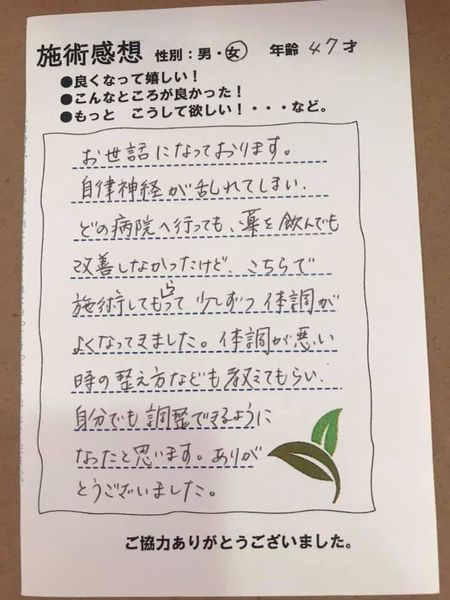 施術感想 性別：男・女 年齢 47才
●良くなって嬉しい！
●こんなところが良かった！
●もっと こうして欲しい！・・・など。
お世話になっております。
自律神経が乱れてしまい、
どの病院へ行っても、薬を飲んでも
改善しなかったけど、こちらで
施術してもらって少しずつ体調が
よくなってきました。体調が悪い
時の整え方なども教えてもらい、
自分でも調整できるように
なれたと思います。ありが
とうございました。
ご協力ありがとうございました。